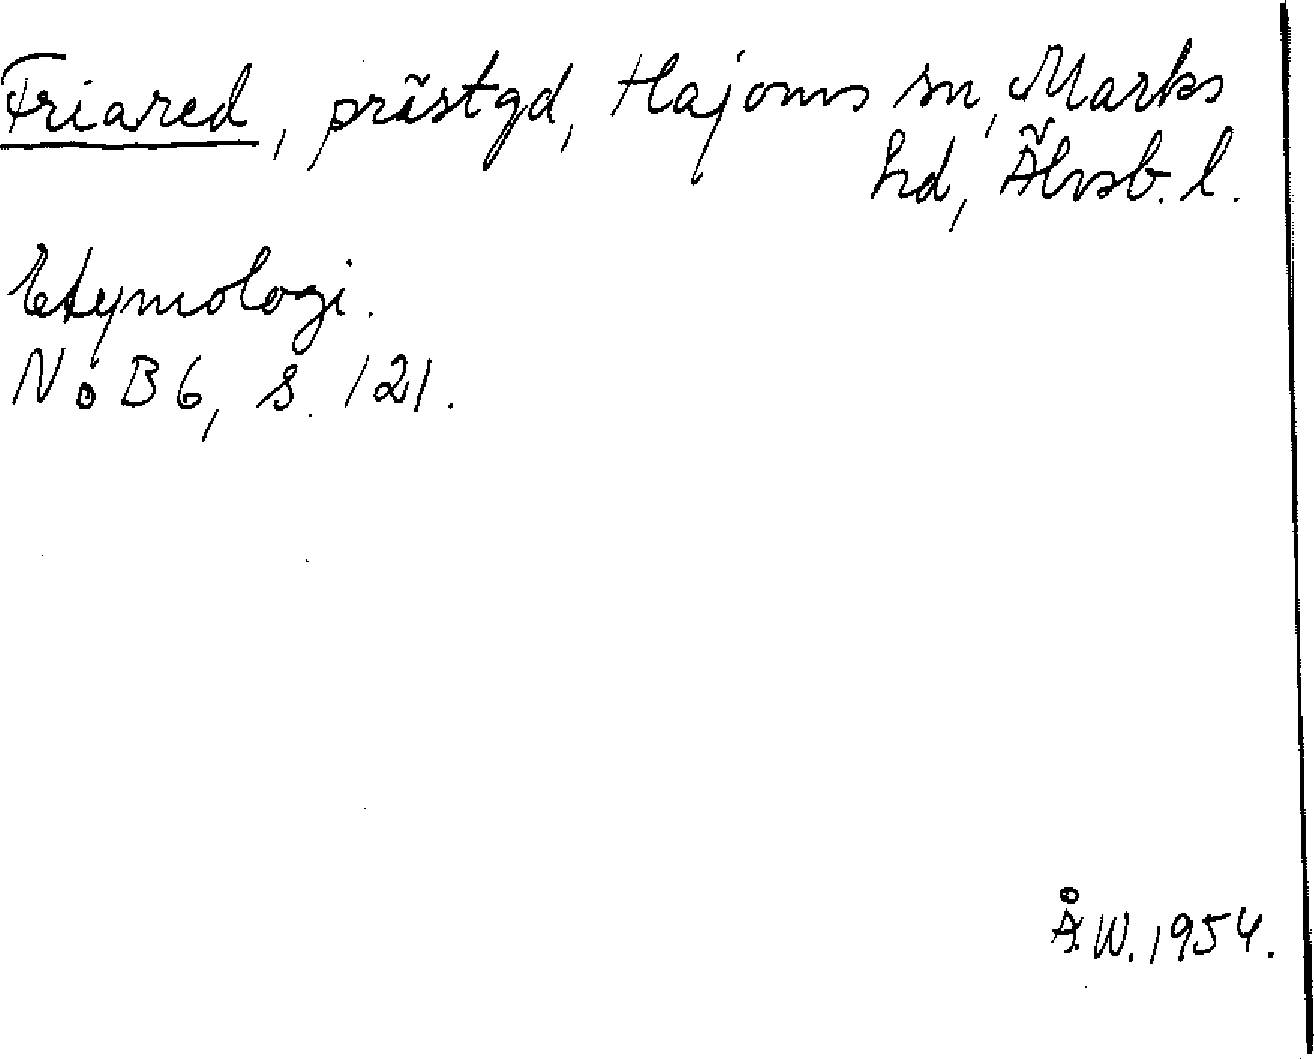 Friared, prästgd, Hajoms sn, Marks
hd, Älvsb. l.
Etymologi.
NoB 6, s. 121.
Å.W. 1954.